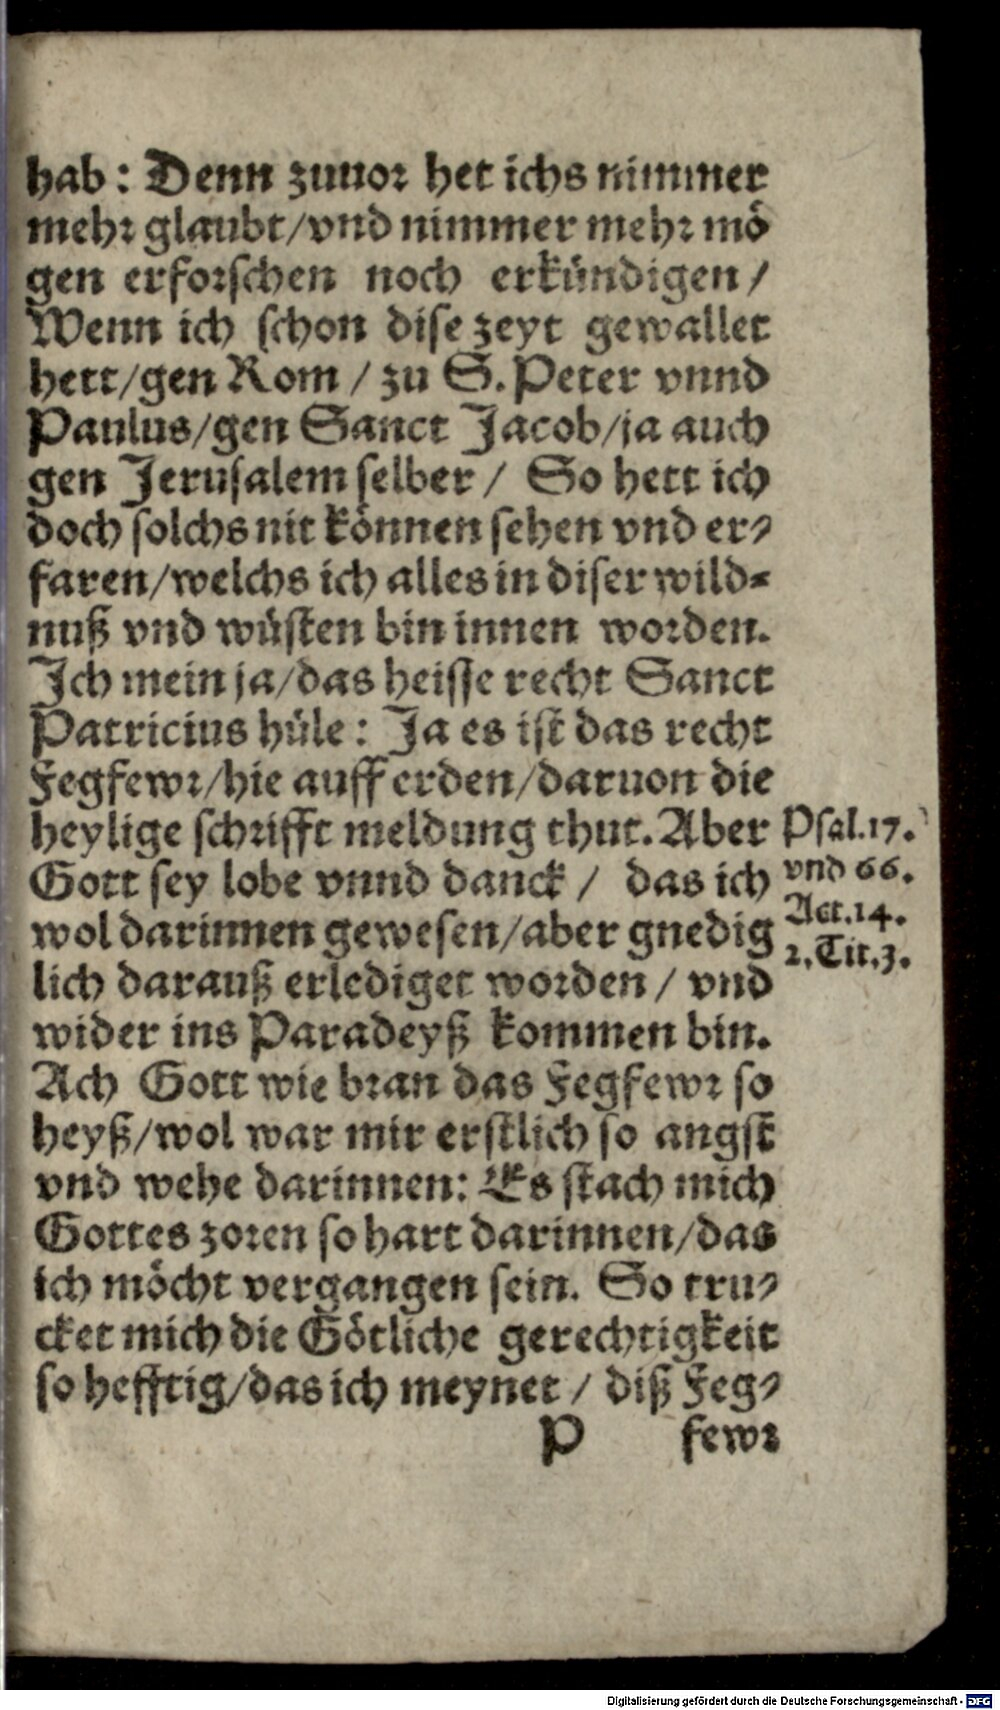 hab: Denn zuuor het ichs nimmer
mehr glaubt/vnd nimmer mehr mö
gen erforschen noch erkündigen/
Wenn ich schon dise zeyt gewallet
hett/gen Rom/zu S. Peter vnnd
Paulus/gen Sanct Jacob/ja auch
gen Jerusalem selber/ So hett ich
doch solchs nit können sehen vnd er-
faren/welchs ich alles in diser wild-
nuß vnd wüsten bin innen worden.
Ich mein ja/das heisse recht Sanct
Patricius hüle: Ja es ist das recht
Fegfewr/hie auff erden/daruon die
heylige schrifft meldung thut. Aber
Gott sey lobe vnnd danck/ das ich
wol darinnen gewesen/aber gnedig
lich darauß erlediget worden/ vnd
wider ins Paradeyß kommen bin.
Ach Gott wie bran das Fegfewr so
heyß/wol war mir erstlich so angst
vnd wehe darinnen: Es stach mich
Gottes zoren so hart darinnen/das
ich möcht vergangen sein. So tru-
cket mich die Götliche gerechtigkeit
so hefftig/das ich meynet/ diß Feg-
P fewr
Psal.17.
vnd 66.
Act.14.
2.Tit.3.
Digitalisierung gefördert durch die Deutsche Forschungsgemeinschaft - DFG